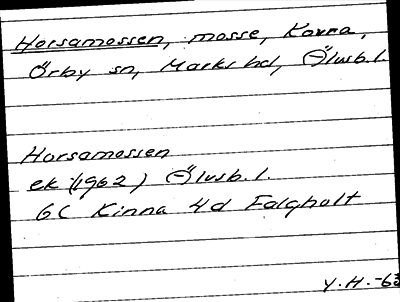 Horsamossen, mosse, Kovra,
Örby sn, Marks hd, Älvsb. l.
Horsamossen
ek (1962) Älvsb. l.
6C Kinna 4d Falghult
Y. H. -63